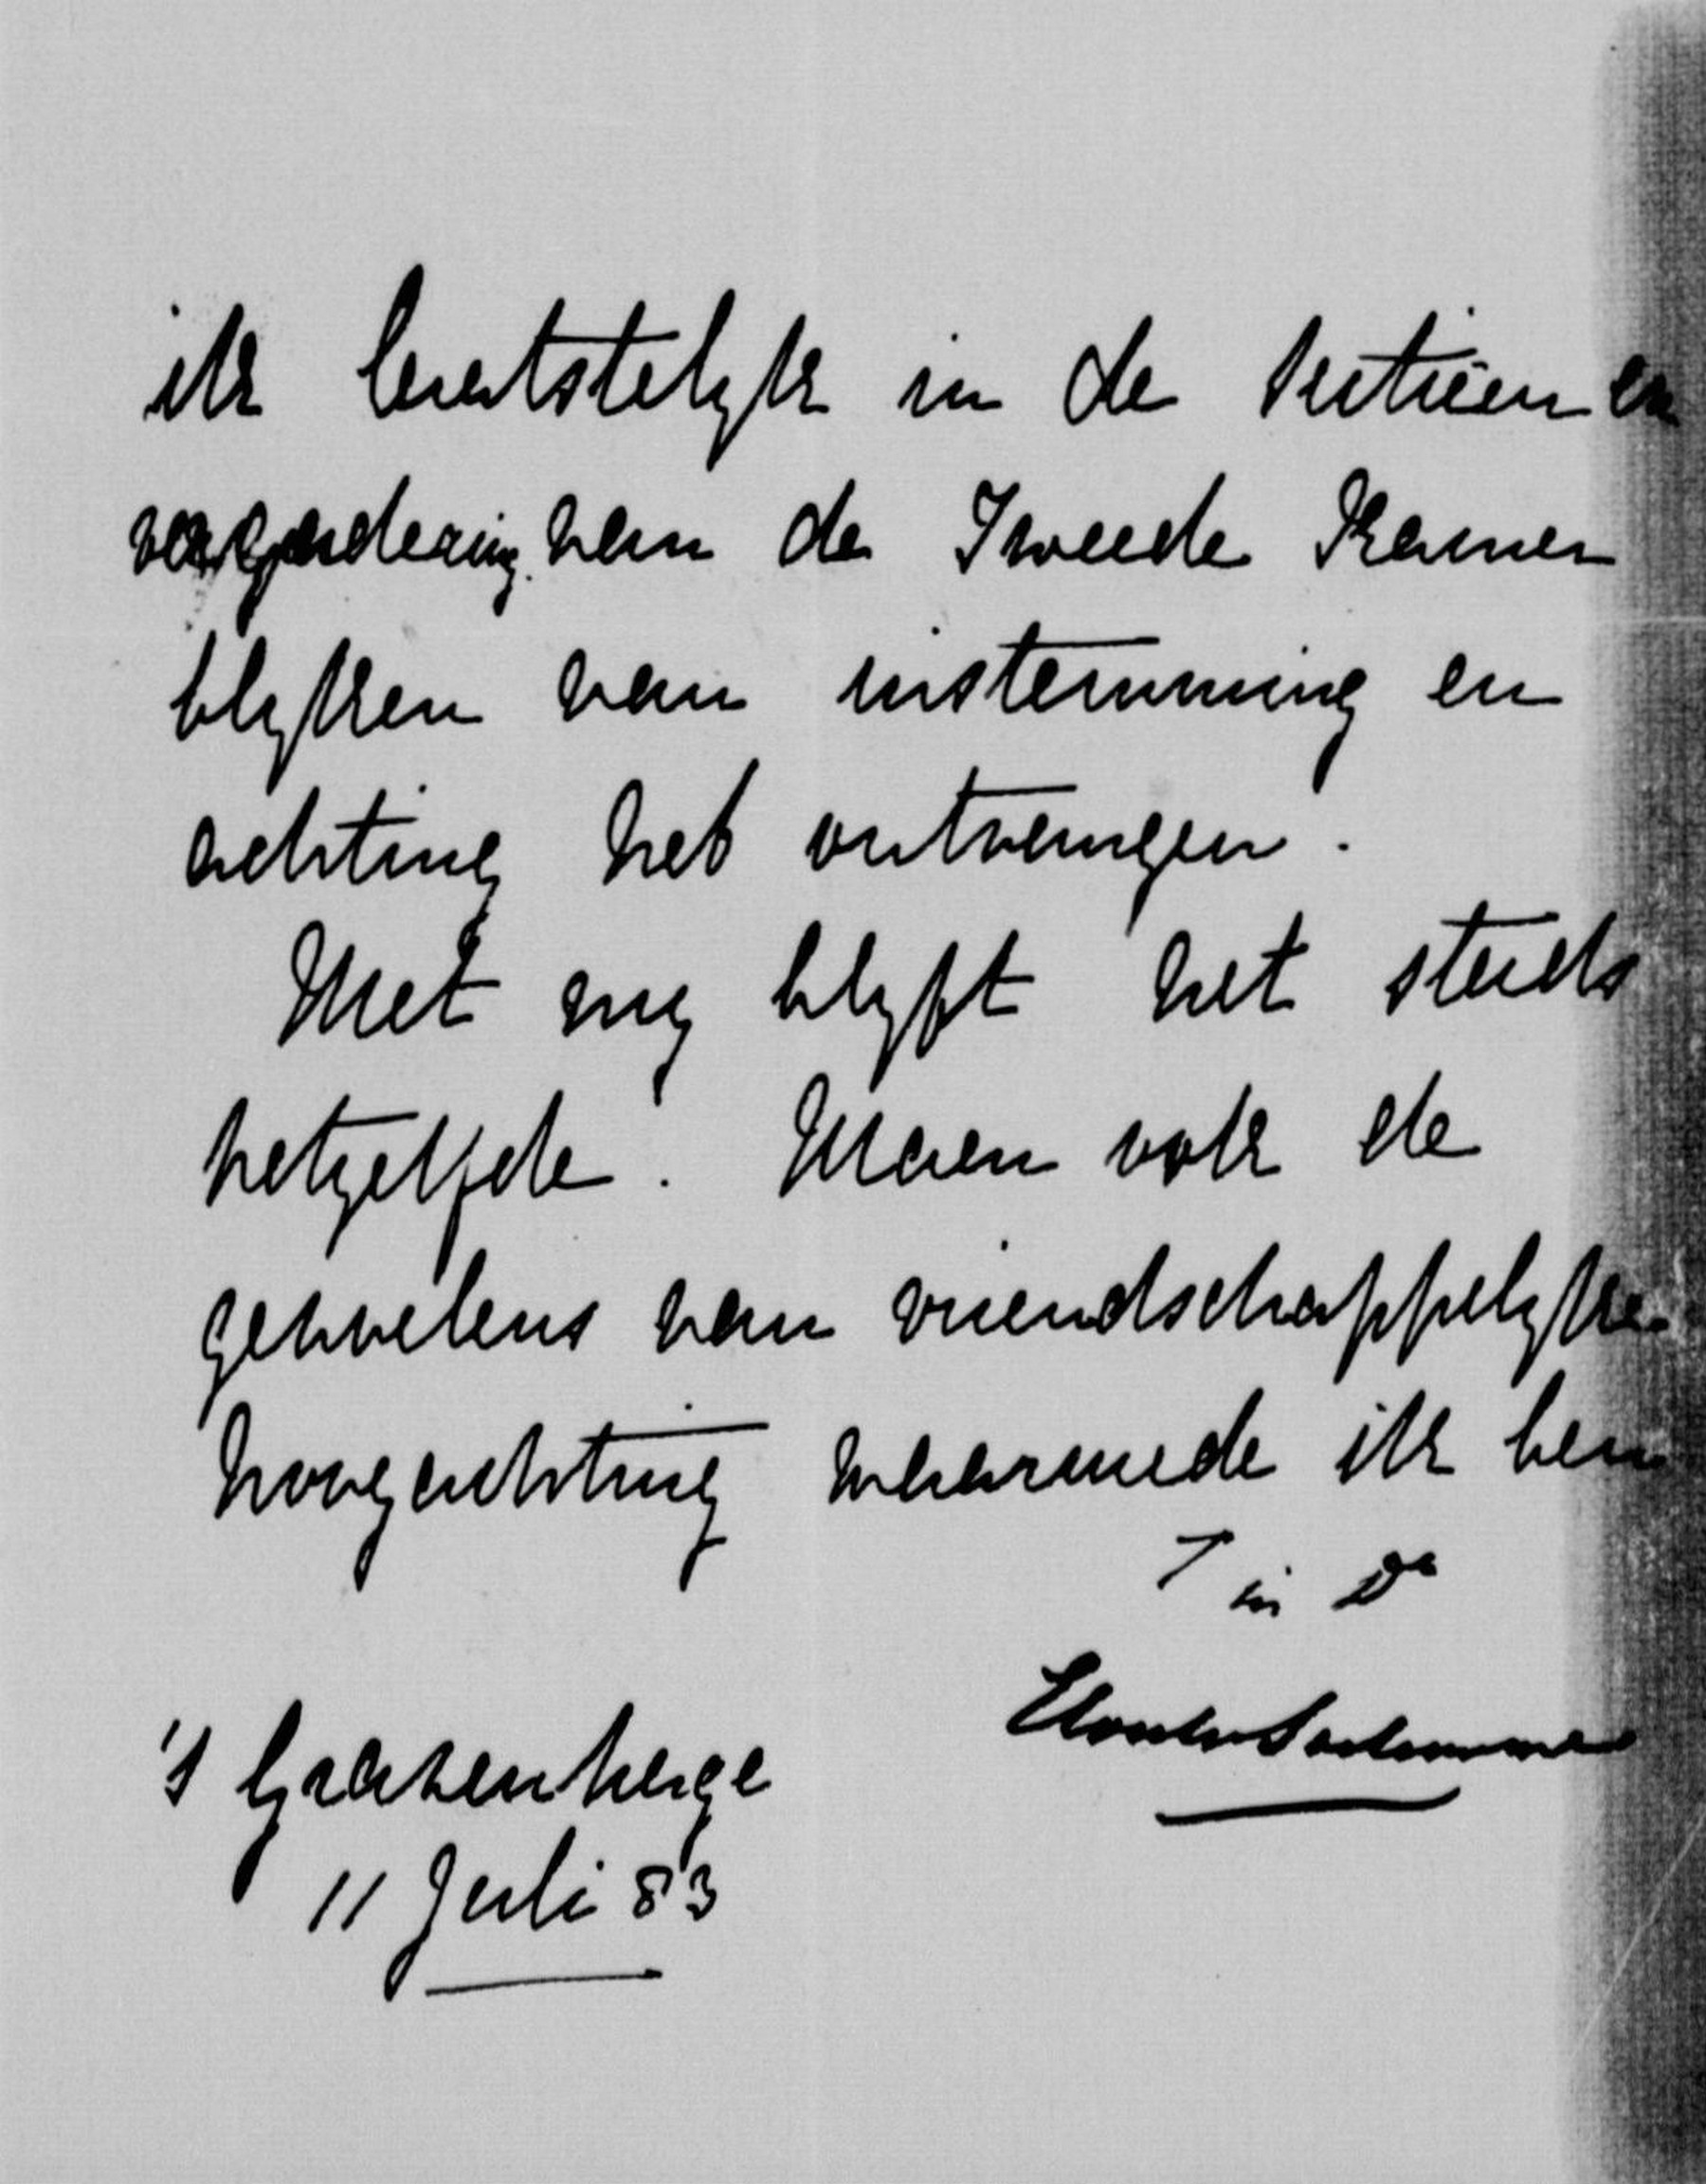 ik laatstelyk in de sectiën en
vergadering van de Tweede Kamer
blyken van instemming en
achting heb ontvangen.
Met my blyft het steeds
hetzelfde. Maar ook de
gevoelens van vriendschappelyke
hoogachting waarmede ik ben
T in a
's Gravenhage
11 Juli 83